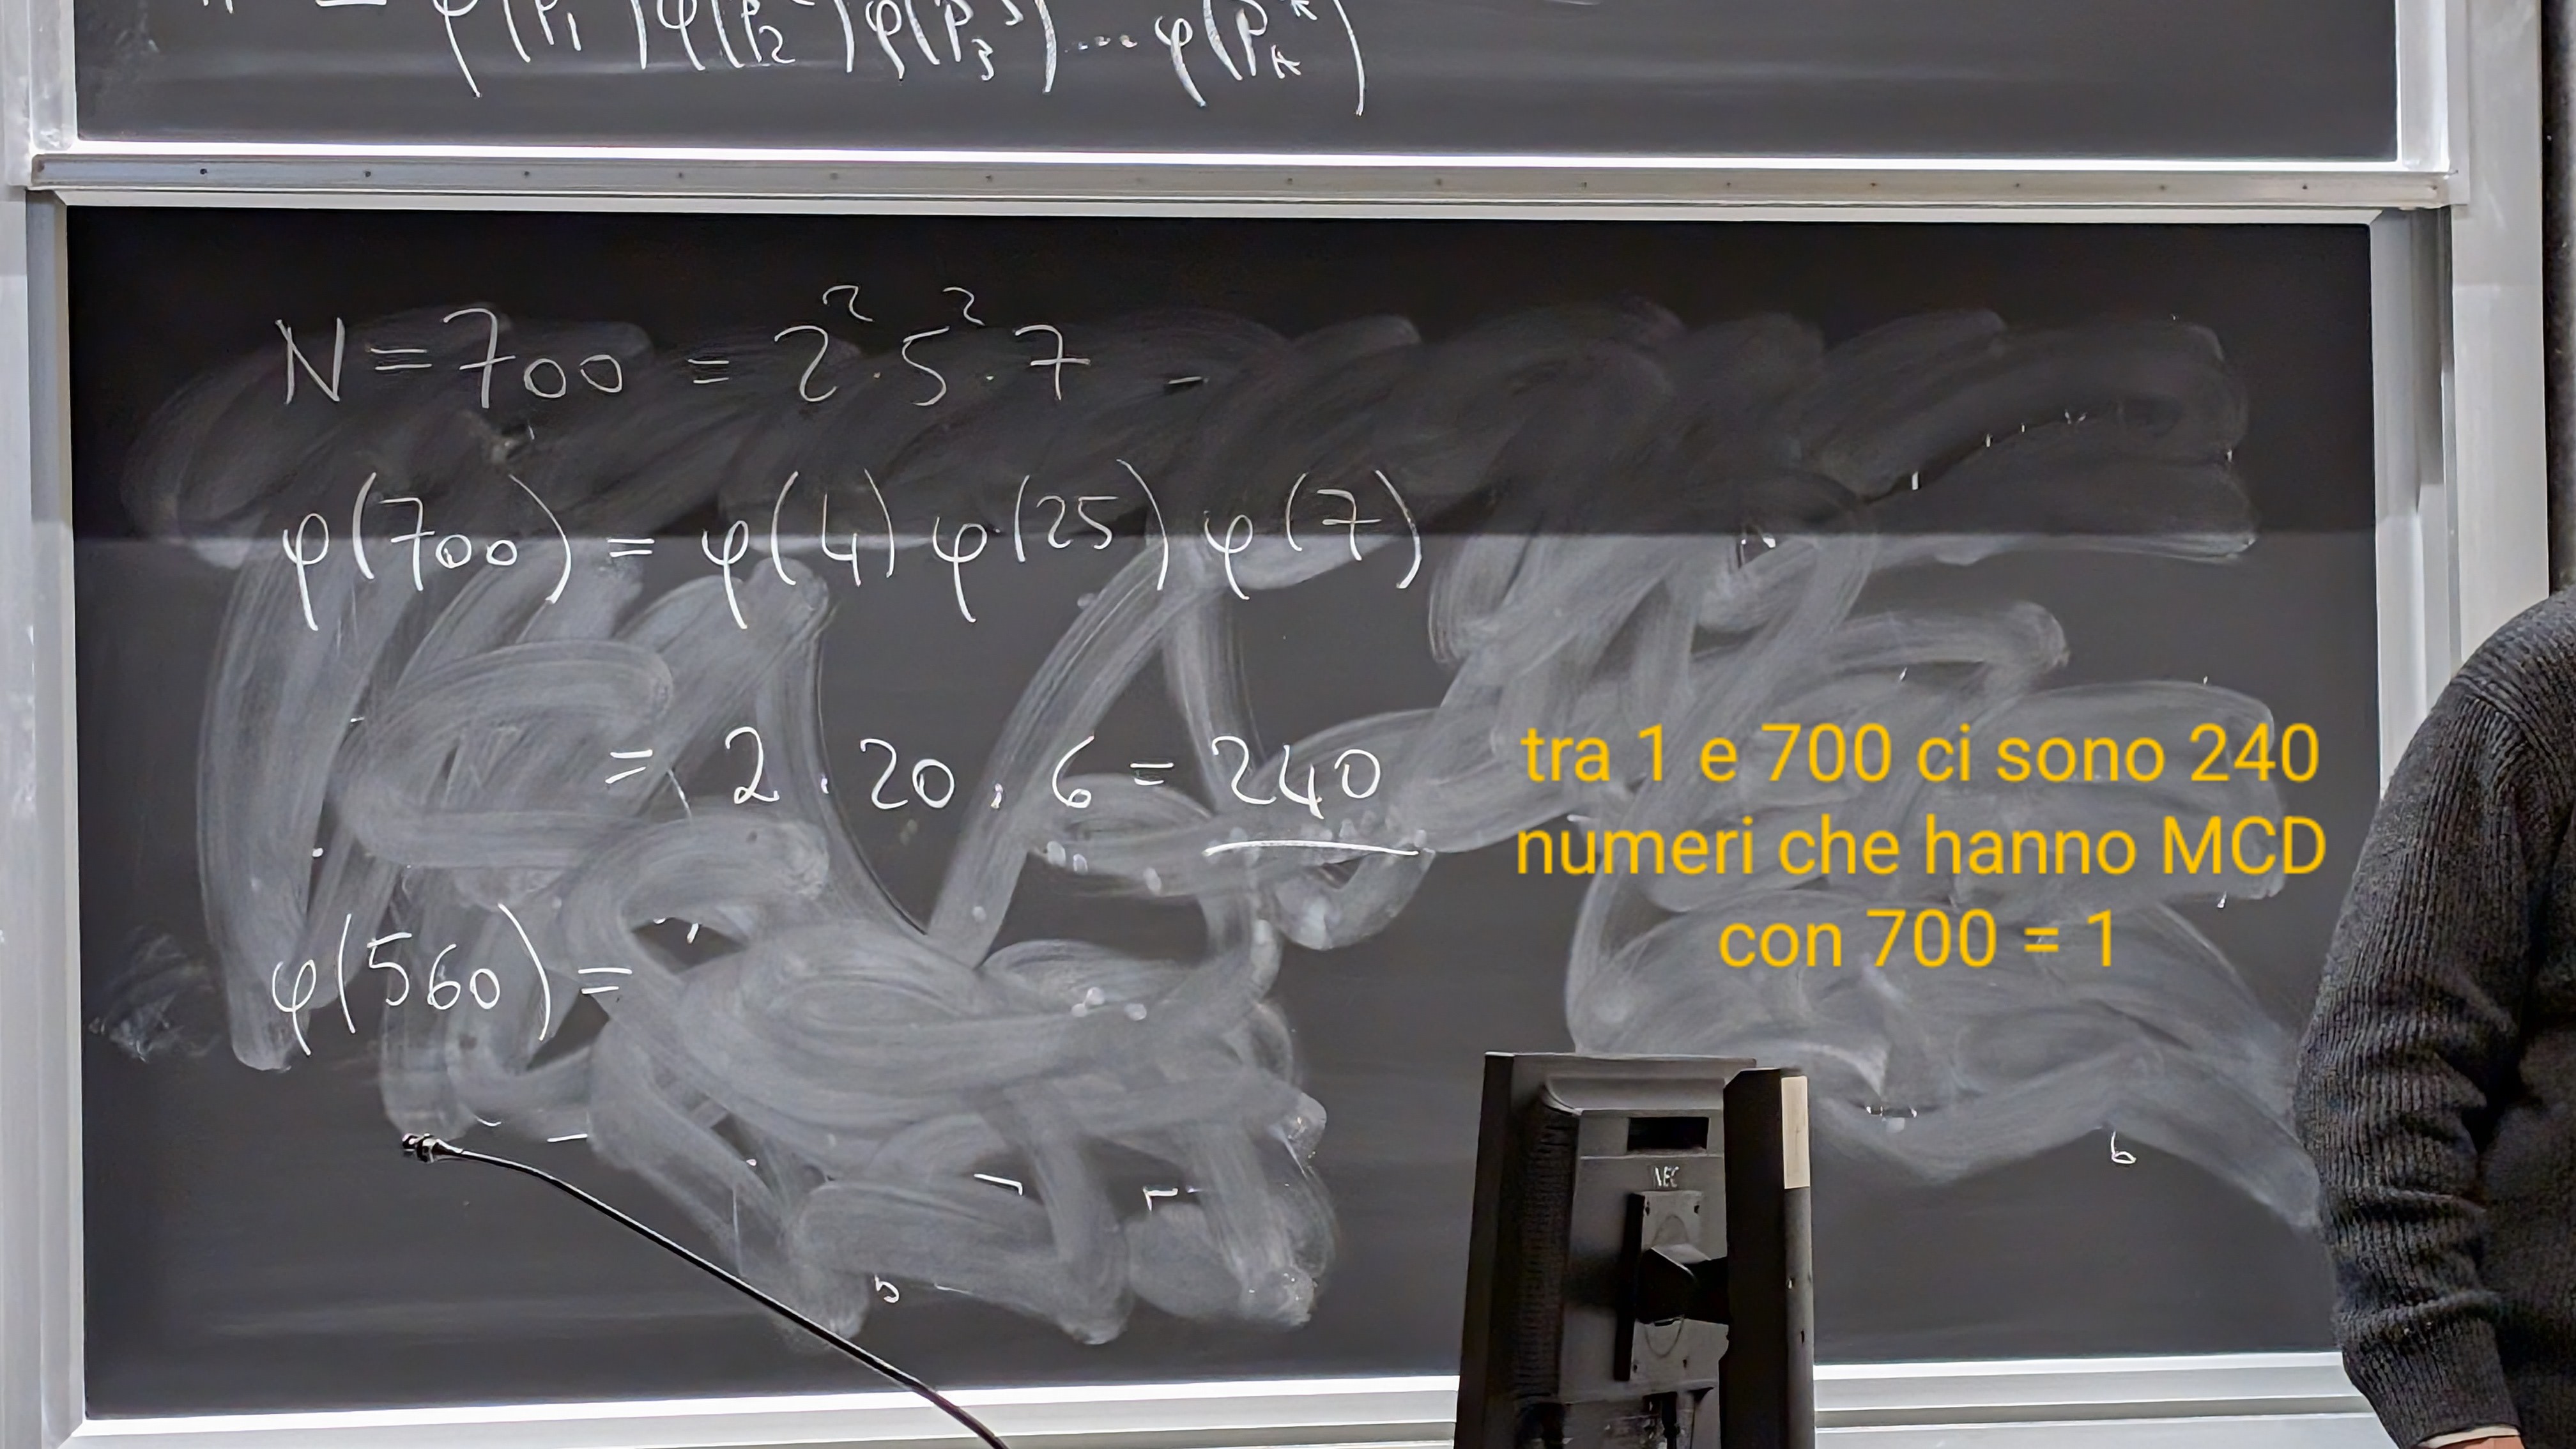 = φ(p₁ )φ(p₂ )φ(p₃ )....φ(pₖ )
N = 700 = 2² · 5² · 7
φ(700) = φ(4) φ(25) φ(7)
= 2 · 20 · 6 = 240
tra 1 e 700 ci sono 240
numeri che hanno MCD
con 700 = 1
φ(560) =
NEC